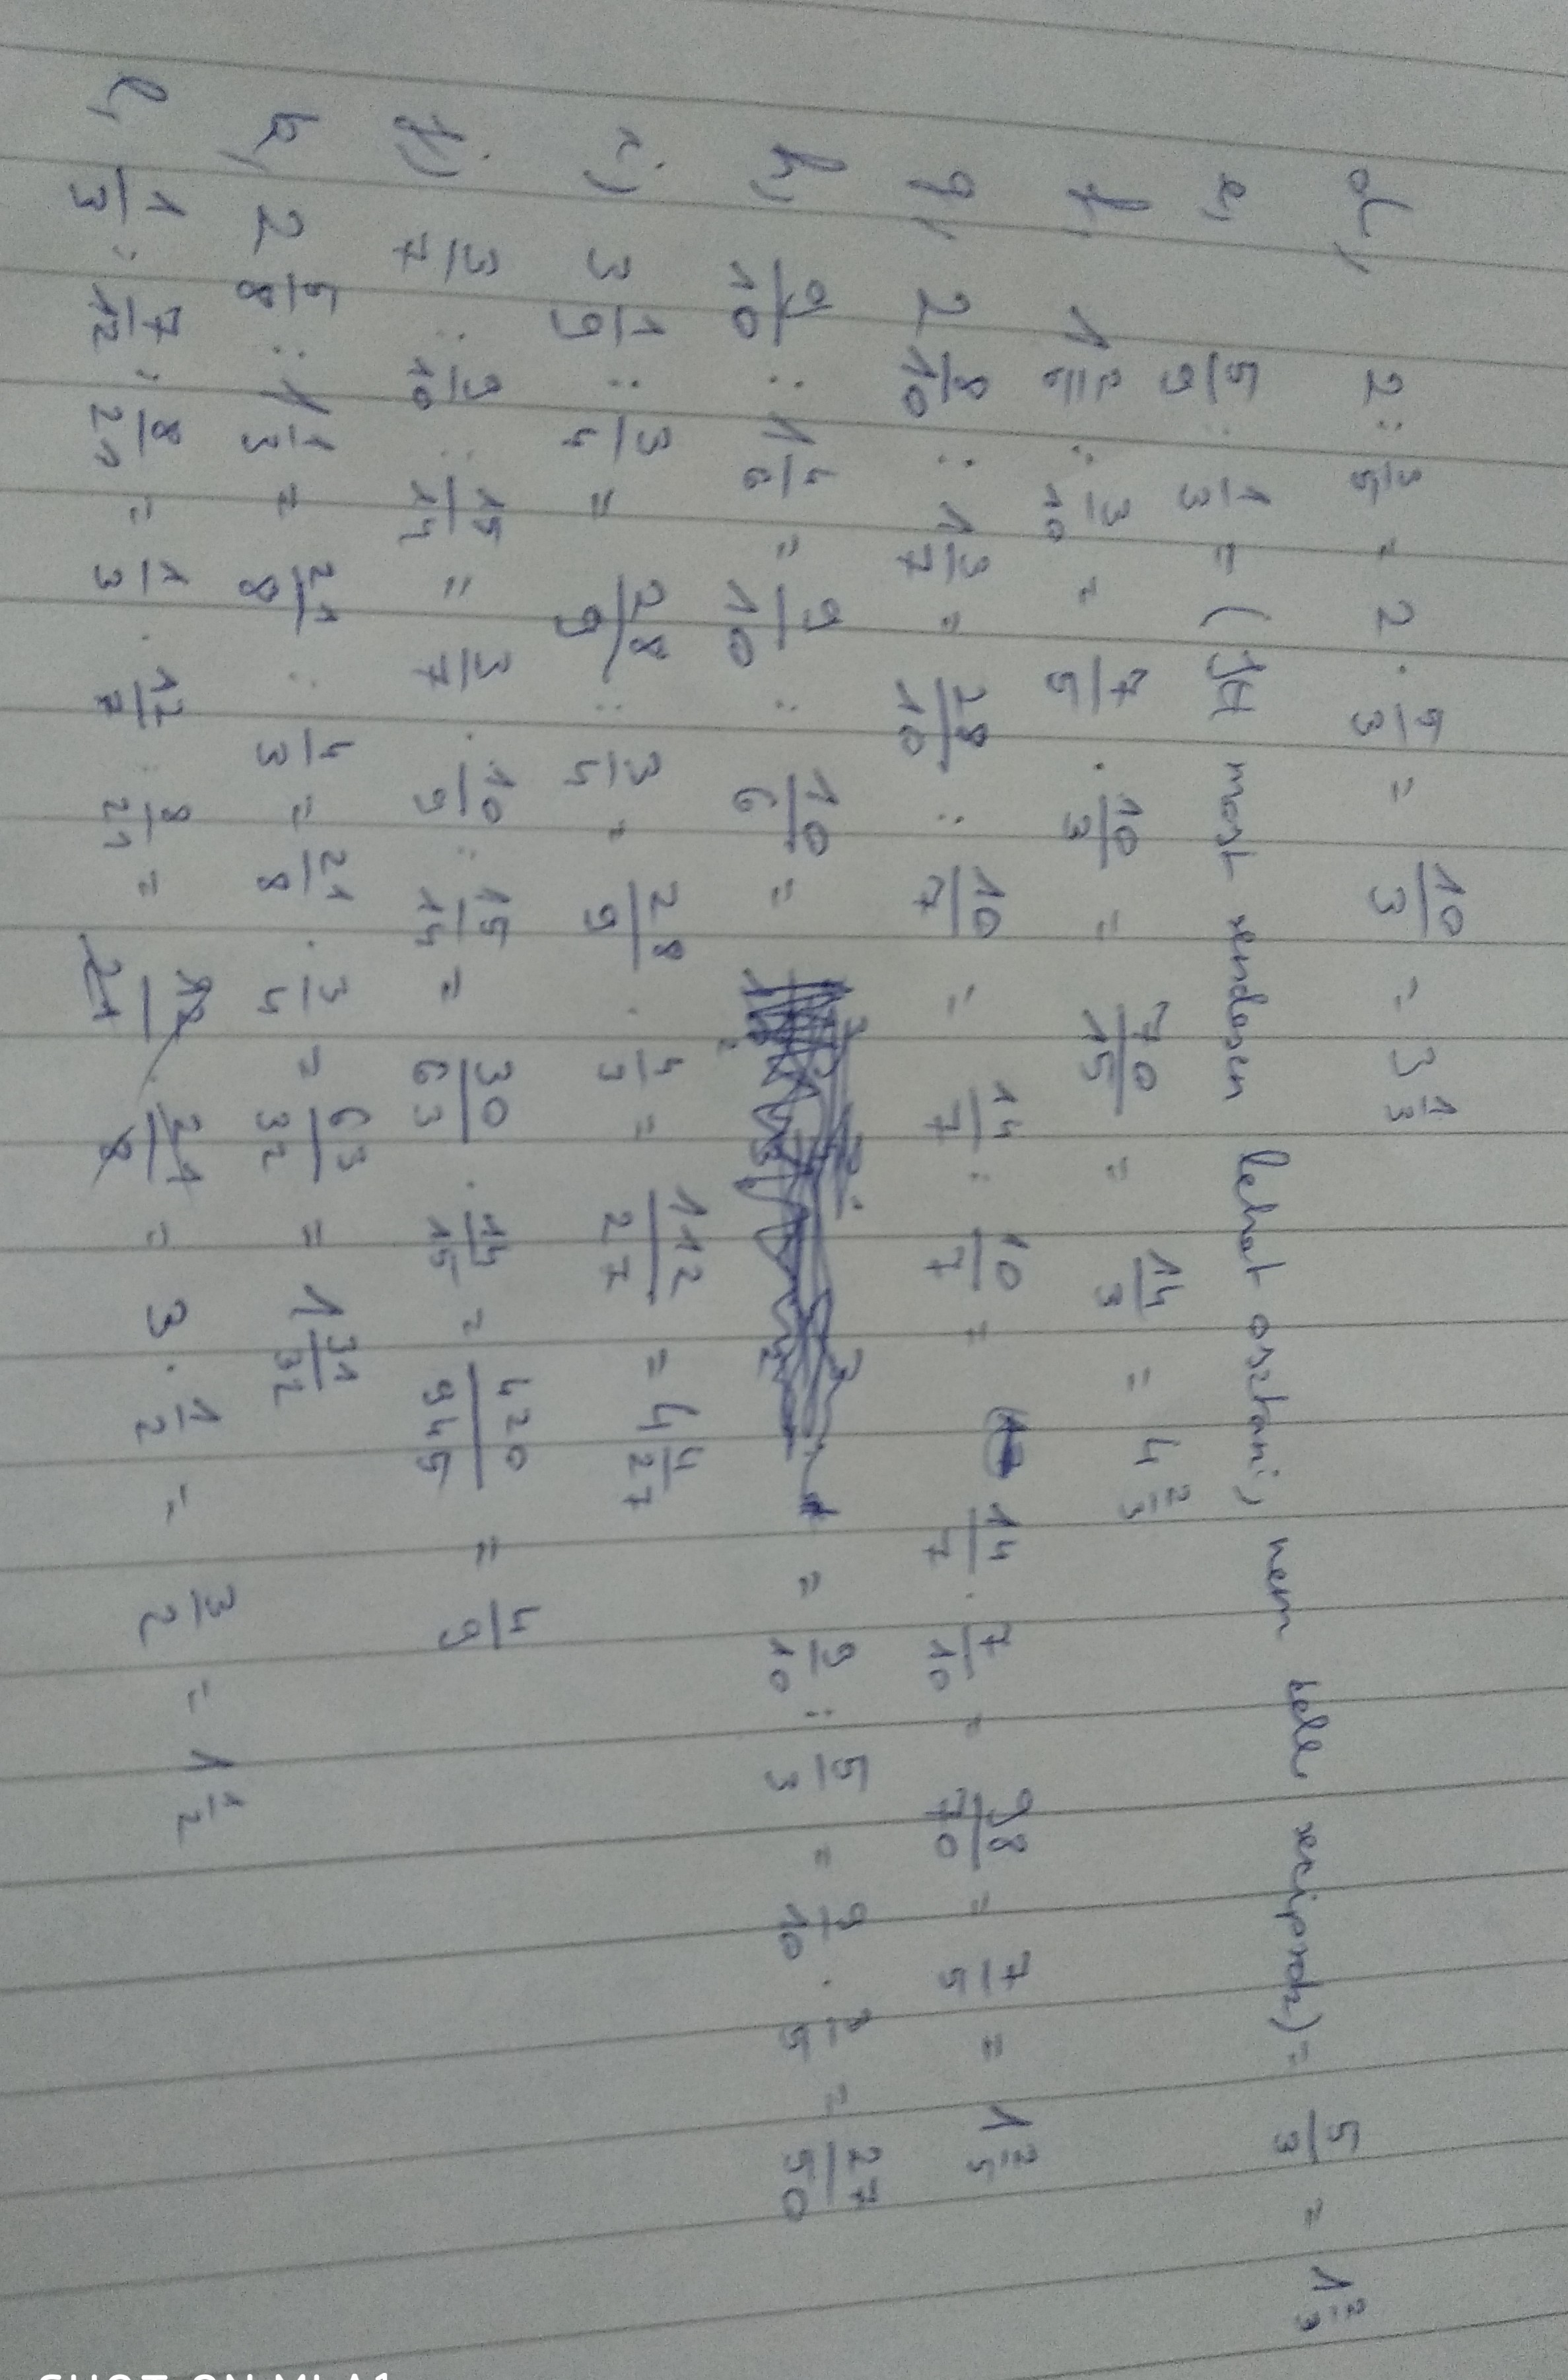 d, 2 : 3/5 = 2 · 5/3 = 10/3 = 3 1/3
e, 5/9 : 1/3 = (Itt most rendesen lehet osztani, nem kell reciprok) = 5/3 = 1 2/3
f, 1 2/5 : 3/10 = 7/5 · 10/3 = 70/15 = 14/3 = 4 2/3
g, 2 8/10 : 1 3/7 = 28/10 : 10/7 = 14/7 : 10/7 = 14/7 · 7/10 = 98/70 = 7/5 = 1 2/5
h, 9/10 : 1 4/6 = 9/10 : 10/6 = = 9/10 : 5/3 = 9/10 · 3/5 = 27/50
i, 3 1/9 : 3/4 = 28/9 : 3/4 = 28/9 · 4/3 = 112/27 = 4 4/27
j, 3/7 : 9/10 : 15/14 = 3/7 · 10/9 : 15/14 = 30/63 · 14/15 = 420/945 = 4/9
k, 2 5/8 : 1 1/3 = 21/8 : 4/3 = 21/8 · 3/4 = 63/32 = 1 31/32
l, 1/3 : 7/12 : 8/21 = 1/3 · 12/7 : 8/21 = 12/21 · 21/8 = 3 · 1/2 = 3/2 = 1 1/2